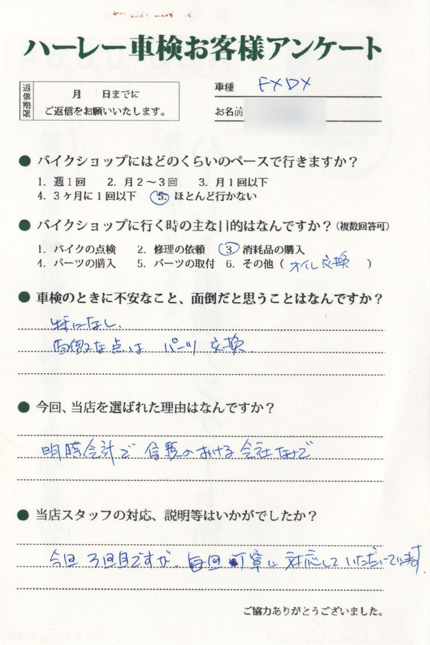 ハーレー車検お客様アンケート
返信期限
月 日までに
ご返信をお願いいたします。
車種 FXDX
お名前
● バイクショップにはどのくらいのペースで行きますか？
1. 週1回 2. 月2～3回 3. 月1回以下
4. 3ヶ月に1回以下 5. ほとんど行かない
● バイクショップに行く時の主な目的はなんですか？(複数回答可)
1. バイクの点検 2. 修理の依頼 3. 消耗品の購入
4. パーツの購入 5. パーツの取付 6. その他 ( オイル交換 )
● 車検のときに不安なこと、面倒だと思うことはなんですか？
特になし、
面倒な点は パーツ 交換
● 今回、当店を選ばれた理由はなんですか？
明瞭会計で 信頼のおける 会社なので
● 当店スタッフの対応、説明等はいかがでしたか？
今回 3回目ですが、毎回 丁寧に 対応して いただいています。
ご協力ありがとうございました。